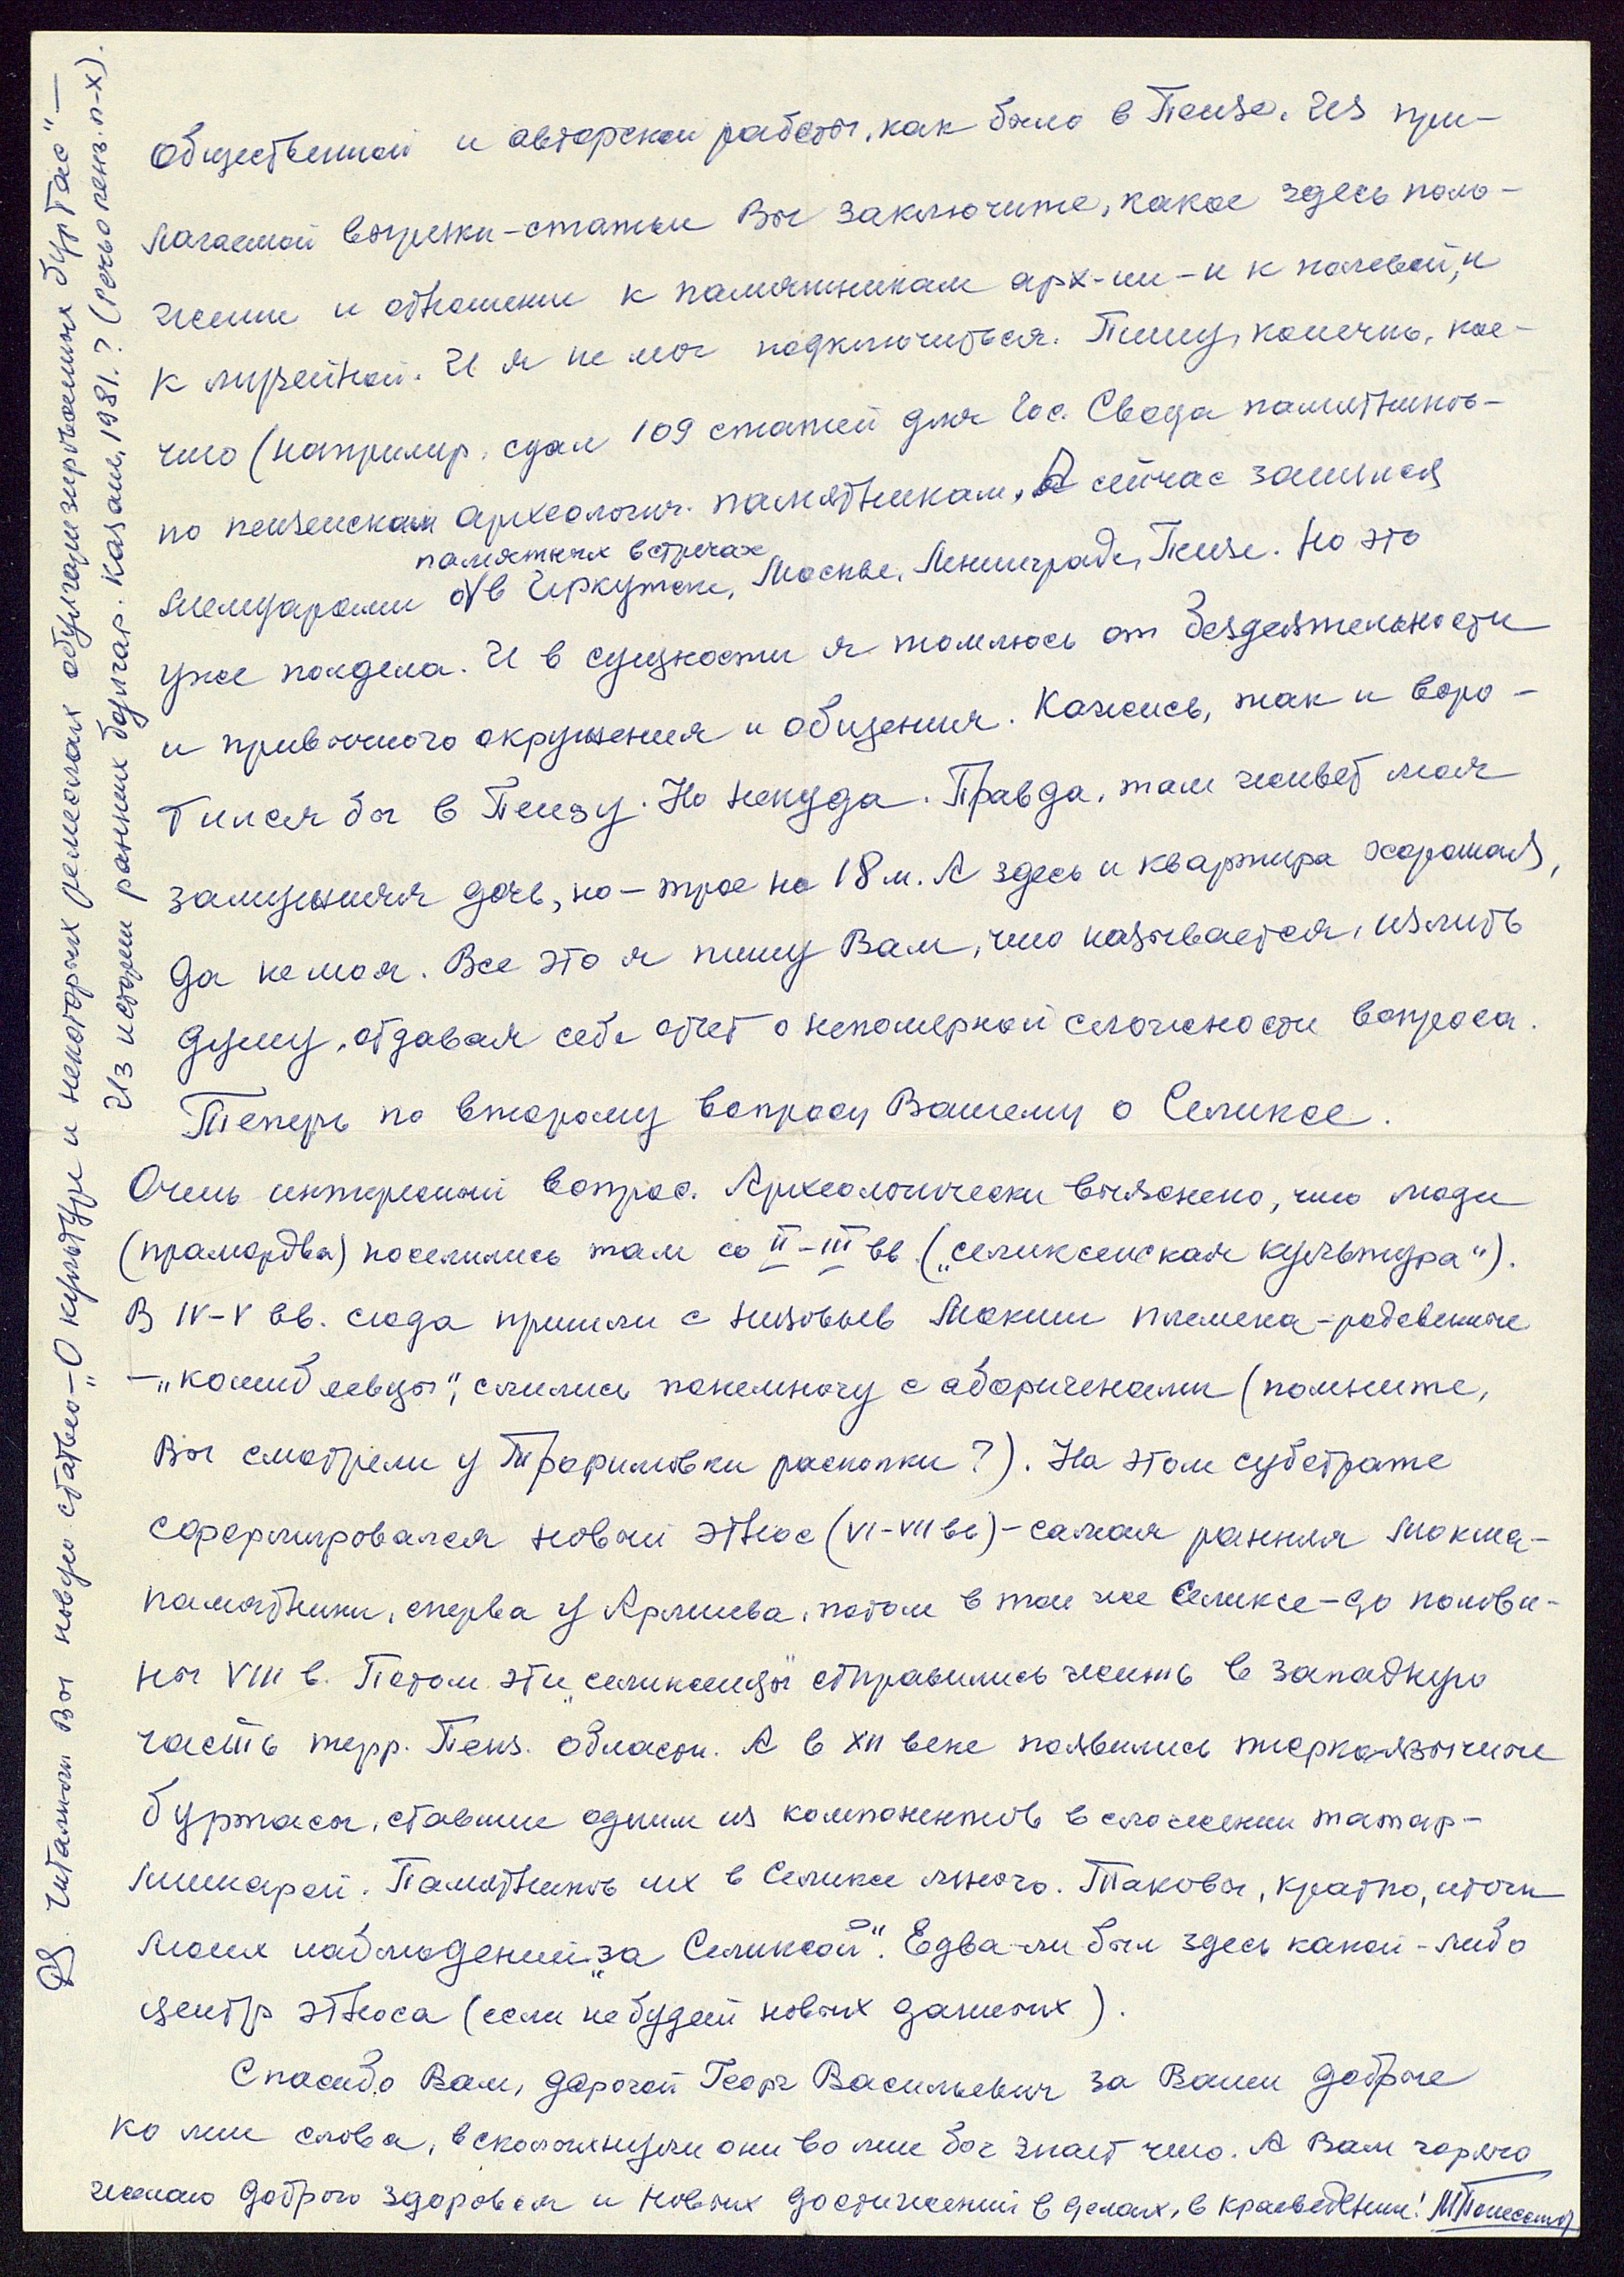 общественной и авторской работы, как было в Пензе. Из при-
лагаемой вырезки-статьи Вы заключите, какое здесь поло-
жение и отношение к памятникам арх-ии – и к полевой, и
к музейной. И я не мог подключиться. Пишу, конечно, кое-
что (например, сдал 109 статей для Гос. Свода памятников –
по пензенским археологич. памятникам. А сейчас занялся
мемуарами о памятных встречах в Иркутске, Москве, Ленинграде, Пензе. Но это
уже полдела. И в сущности я томлюсь от бездеятельности
и привычного окружения и общения. Кажись, так и воро-
тился бы в Пензу. Но некуда. Правда, там живет моя
замужняя дочь, но – трое на 18 м. А здесь и квартира хорошая,
да не моя. Все это я пишу Вам, что называется, излить
душу, отдавая себе отчет о непомерной сложности вопроса.
Теперь по второму вопросу Вашему о Селиксе.
Очень интересный вопрос. Археологически выяснено, что люди
(прамордва) поселились там со II–III вв. („селиксенская культура“).
В IV–V вв. сюда пришли с низовьев Мокши племена-родственные
– „кошибеевцы“, слились понемногу с аборигенами (помните,
Вы смотрели у Трофимовки раскопки?). На этом субстрате
сформировался новый этнос (VI–VII вв) – самая ранняя мокша –
памятники, сперва у Армиева, потом в той же Селиксе – до полови-
ны VIII в. Потом эти „селиксенцы“ отправились жить в западную
часть терр. Пенз. области. А в XII веке появились тюркоязычные
буртасы, ставшие одним из компонентов в сложении татар-
мишарей. Памятников их в Селиксе много. Таковы, кратко, итоги
моих наблюдений „за Селиксой“. Едва-ли был здесь какой-либо
центр этноса (если не будет новых данных).
Спасибо Вам, дорогой Георг Васильевич за Ваши добрые
ко мне слова, всколыхнули они во мне бог знает что. А Вам горячо
желаю доброго здоровья и новых достижений в делах, в краеведении! МПолесских
PS Читали ли Вы новую статью – „О культуре и некоторых ремеслах обулгаризированных буртас“ –
Из истории ранних булгар. Казань, 1981.? (Речь о пенз. п-х).